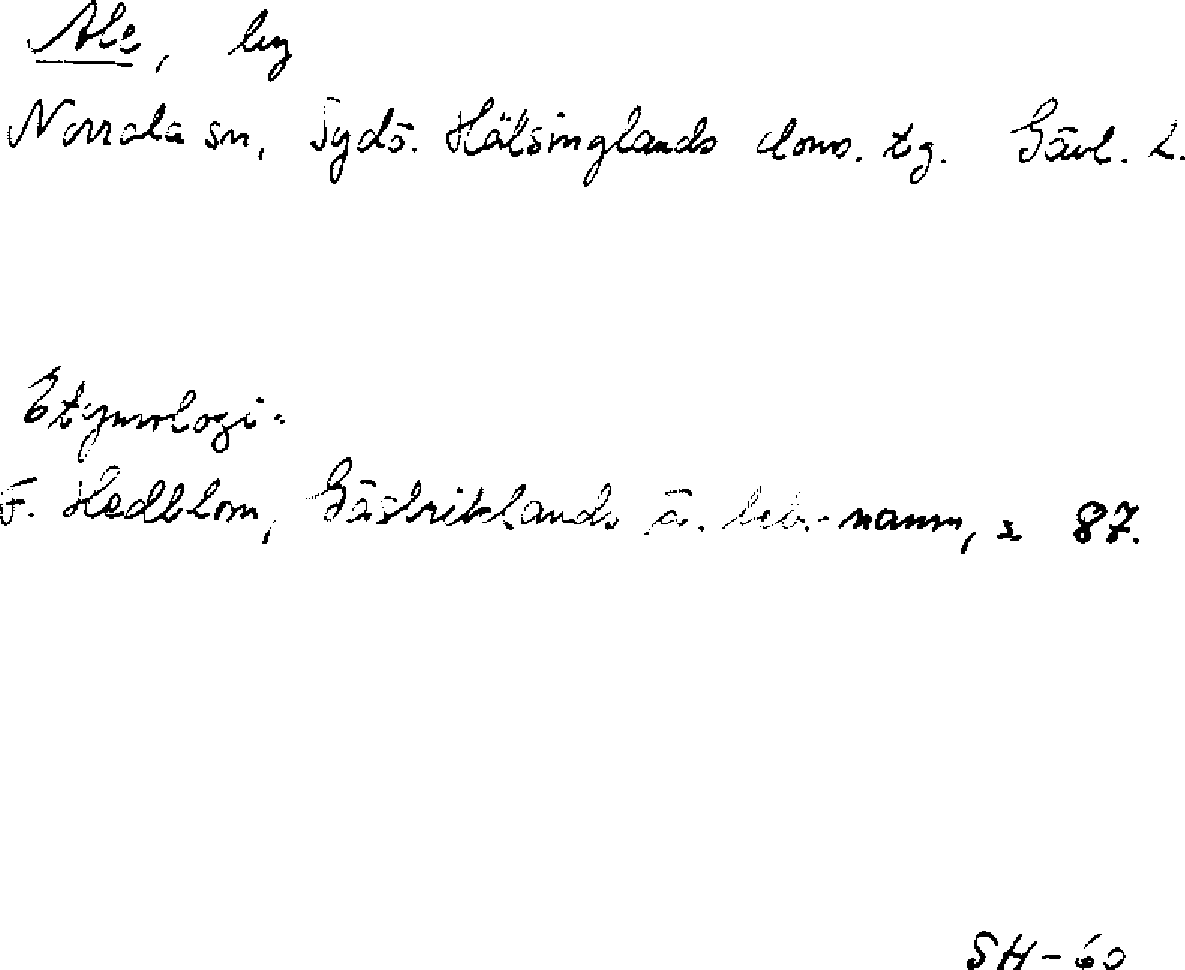 Ale, by
Norrala sn, Sydö. Hälsinglands doms. tg. Gävl. L.
Etymologi:
F. Hedblom, Gästriklands ä. beb.-namn, s 87.
SH-60